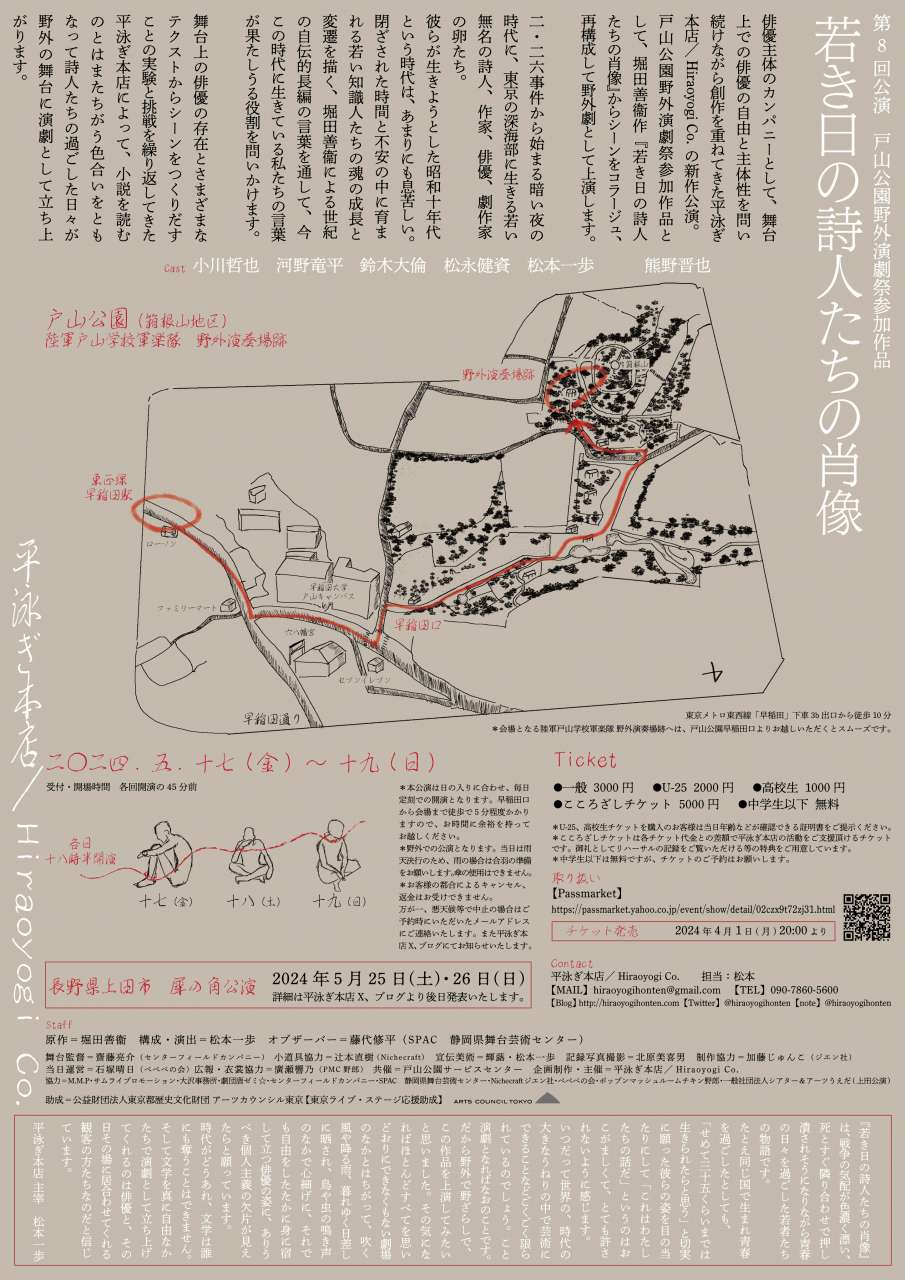 第8回公演　戸山公園野外演劇祭参加作品
若き日の詩人たちの肖像
俳優主体のカンパニーとして、舞台
上での俳優の自由と主体性を問い
続けながら創作を重ねてきた平泳ぎ
本店／Hiraoyogi Co. の新作公演。
戸山公園野外演劇祭参加作品と
して、堀田善衞作『若き日の詩人
たちの肖像』からシーンをコラージュ、
再構成して野外劇として上演します。
二・二六事件から始まる暗い夜の
時代に、東京の深海部に生きる若い
無名の詩人、作家、俳優、劇作家
の卵たち。
彼らが生きようとした昭和十年代
という時代は、あまりにも息苦しい。
閉ざされた時間と不安の中に育ま
れる若い知識人たちの魂の成長と
変遷を描く、堀田善衞による世紀
の自伝的長編の言葉を通して、今
この時代に生きている私たちの言葉
が果たしうる役割を問いかけます。
舞台上の俳優の存在とさまざまな
テクストからシーンをつくりだす
ことの実験と挑戦を繰り返してきた
平泳ぎ本店によって、小説を読む
のとはまたちがう色合いをとも
なって詩人たちの過ごした日々が
野外の舞台に演劇として立ち上
がります。
Cast 小川哲也　河野竜平　鈴木大倫　松永健資　松本一歩　熊野晋也
戸山公園（箱根山地区）
陸軍戸山学校軍楽隊　野外演奏場跡
野外演奏場跡
箱根山
東西線
早稲田駅
ローソン
ファミリーマート
早稲田大学
戸山キャンパス
穴八幡宮
セブンイレブン
早稲田口
早稲田通り
東京メトロ東西線「早稲田」下車 3b 出口から徒歩 10 分
＊会場となる陸軍戸山学校軍楽隊 野外演奏場跡へは、戸山公園早稲田口よりお越しいただくとスムーズです。
平泳ぎ本店／Hiraoyogi Co.
二〇二四．五．十七（金）〜十九（日）
受付・開場時間　各回開演の 45 分前
各日
十八時半開演
十七（金）
十八（土）
十九（日）
＊本公演は日の入りに合わせ、毎日
定刻での開演となります。早稲田口
から会場まで徒歩で 5 分程度かかり
ますので、お時間に余裕を持って
お越しください。
＊野外での公演となります。当日は雨
天決行のため、雨の場合は合羽の準備
をお願いします。傘の使用はできません。
＊お客様の都合によるキャンセル、
返金はお受けできません。
万が一、悪天候等で中止の場合はご
予約時にいただいたメールアドレス
にご連絡いたします。また平泳ぎ本
店 X、ブログにてお知らせいたします。
Ticket
●一般 3000 円　●U-25 2000 円　●高校生 1000 円
●こころざしチケット 5000 円　●中学生以下 無料
＊U-25、高校生チケットを購入のお客様は当日年齢などが確認できる証明書をご提示ください。
＊こころざしチケットは各チケット代金との差額で平泳ぎ本店の活動をご支援頂けるチケット
です。御礼としてリハーサルの記録をご覧いただける等の特典をご用意しています。
＊中学生以下は無料ですが、チケットのご予約はお願いします。
取り扱い
【Passmarket】
https://passmarket.yahoo.co.jp/event/show/detail/02czx9t72zj31.html
チケット発売　2024 年 4 月 1 日（月）20:00 より
Contact
平泳ぎ本店／ Hiraoyogi Co.　担当：松本
【MAIL】hiraoyogihonten@gmail.com　【TEL】090-7860-5600
【Blog】http://hiraoyogihonten.com【Twitter】@hiraoyogihonten【note】@hiraoyogihonten
長野県上田市　犀の角公演　2024 年 5 月 25 日（土）・26 日（日）
詳細は平泳ぎ本店 X、ブログより後日発表いたします。
Staff
原作＝堀田善衞　構成・演出＝松本一歩　オブザーバー＝藤代修平（SPAC　静岡県舞台芸術センター）
舞台監督＝齋藤亮介（センターフィールドカンパニー）　小道具協力＝辻本直樹（Nichecraft）　宣伝美術＝輝蕗・松本一歩　記録写真撮影＝北原美喜男　制作協力＝加藤じゅんこ（ジエン社）
当日運営＝石塚晴日（ぺぺぺの会）広報・衣裳協力＝廣瀬響乃（PMC 野郎）　共催＝戸山公園サービスセンター　企画制作・主催＝平泳ぎ本店／ Hiraoyogi Co.
協力＝M.M.P・サムライプロモーション・大沢事務所・劇団唐ゼミ☆・センターフィールドカンパニー・SPAC　静岡県舞台芸術センター・Nichecraft ジエン社・ぺぺぺの会・ポップンマッシュルームチキン野郎・一般社団法人シアター＆アーツうえだ（上田公演）
助成＝公益財団法人東京都歴史文化財団 アーツカウンシル東京【東京ライブ・ステージ応援助成】　ARTS COUNCIL TOKYO
『若き日の詩人たちの肖像』
は、戦争の気配が色濃く漂い、
死とすぐ隣り合わせで押し
潰されそうになりながら青春
の日々を過ごした若者たち
の物語です。
たとえ同じ国で生まれ青春
を過ごしたとしても、
「せめて三十五くらいまでは
生きられたらと思う」と切実
に願った彼らの姿を目の当
たりにして「これはわたし
たちの話だ」というのはお
こがましくて、とても許さ
れないように感じます。
いつだって世界の、時代の
大きなうねりの中で芸術に
できることなどごくごく限ら
れているのでしょう。こと
演劇となればなおのことです。
だから野外で野ざらしで、
この作品を上演してみたい
と思いました。その気にな
ればほとんどすべてを思い
どおりにできなくもない劇場
のなかとはちがって、吹く
風や降る雨、暮れゆく日差し
に晒され、鳥や虫の鳴き声
のなかで心細げに、それで
も自由をしたたかに身に宿
して立つ俳優の姿に、ありう
べき個人主義の欠片が見え
たらと願っています。
時代がどうあれ、文学は誰
にも奪うことはできません。
そして文学を真に自由なか
たちで演劇として立ち上げ
てくれるのは俳優と、その
日その場に居合わせてくれる
観客の方たちなのだと信じ
ています。
平泳ぎ本店主宰　松本一歩